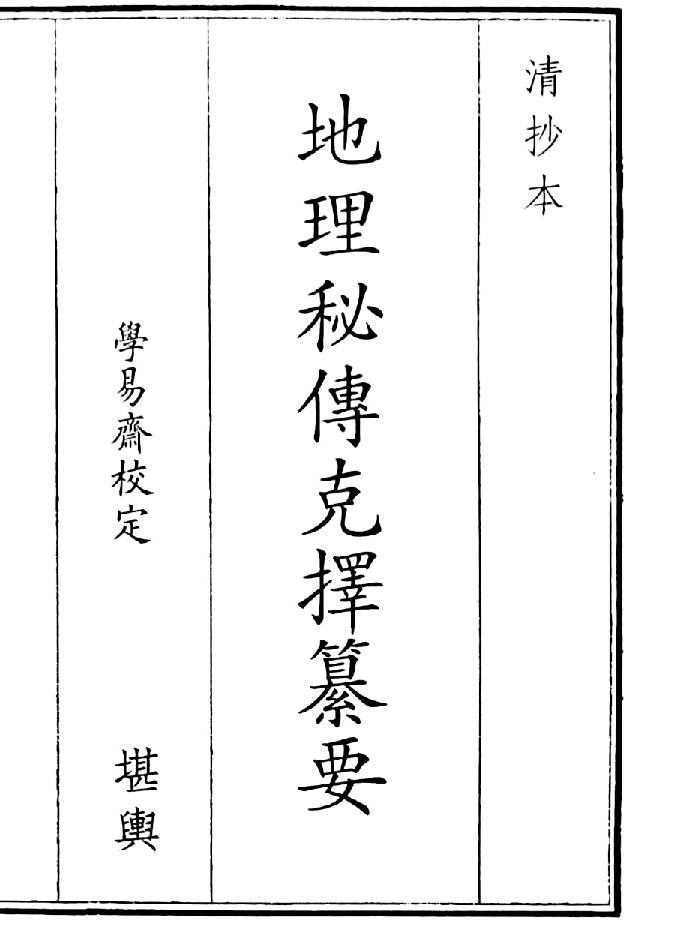 清抄本
地理秘傳克擇纂要
學易齋校定
堪輿